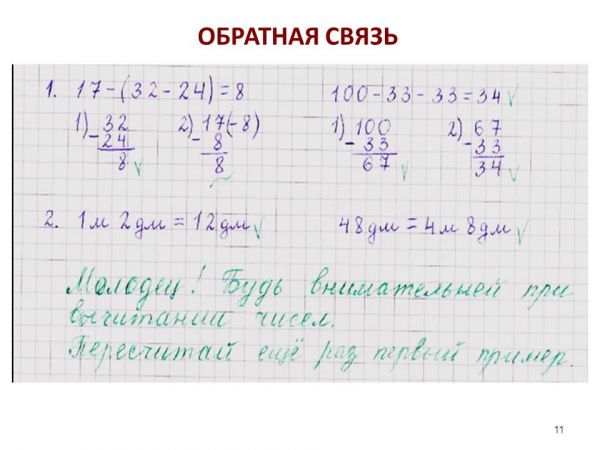 ОБРАТНАЯ СВЯЗЬ
1. 17-(32-24)=8 100-33-33=34
1) 32 2) 17(-8) 1) 100 2) 67
- 24 - 8 - 33 - 33
8 8 67 34
2. 1м 2дм = 12дм 48дм = 4м 8дм
Молодец! Будь внимательней при
вычитании чисел.
Пересчитай ещё раз первый пример.
11